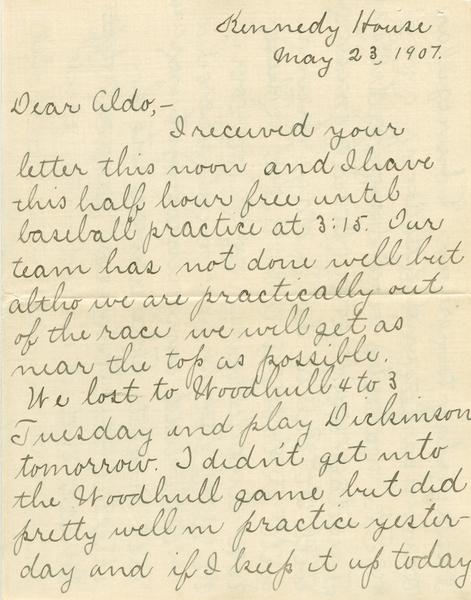 Kennedy House
May 23, 1907.
Dear Aldo,-
I received your
letter this noon and I have
this half hour free until
baseball practice at 3:15. Our
team has not done well but
altho we are practically out
of the race we will get as
near the top as possible.
We lost to Woodhull 4 to 3
Tuesday and play Dickinson
tomorrow. I didn't get into
the Woodhull game but did
pretty well in practice yester-
day and if I keep it up today